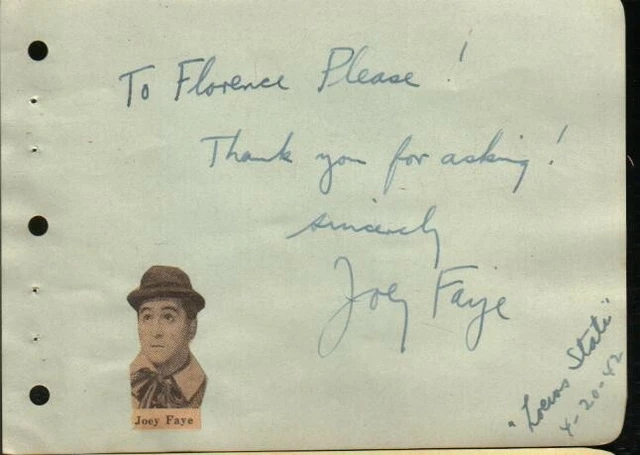 To Florence Please!
Thank you for asking!
sincerely
Joey Faye
Joey Faye
"Loews State"
4-20-42